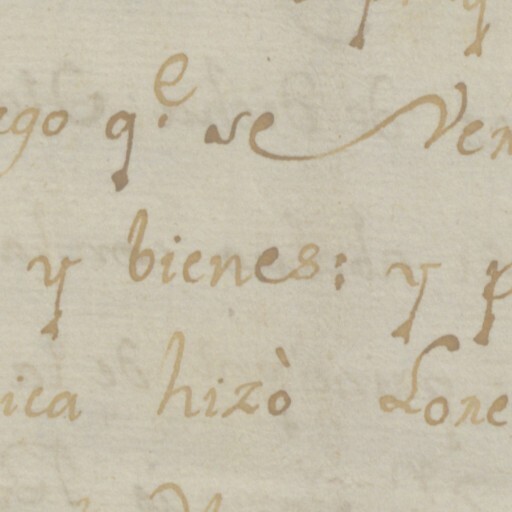 ego q.e se Ven
y bienes: y p
ica hizò Lore